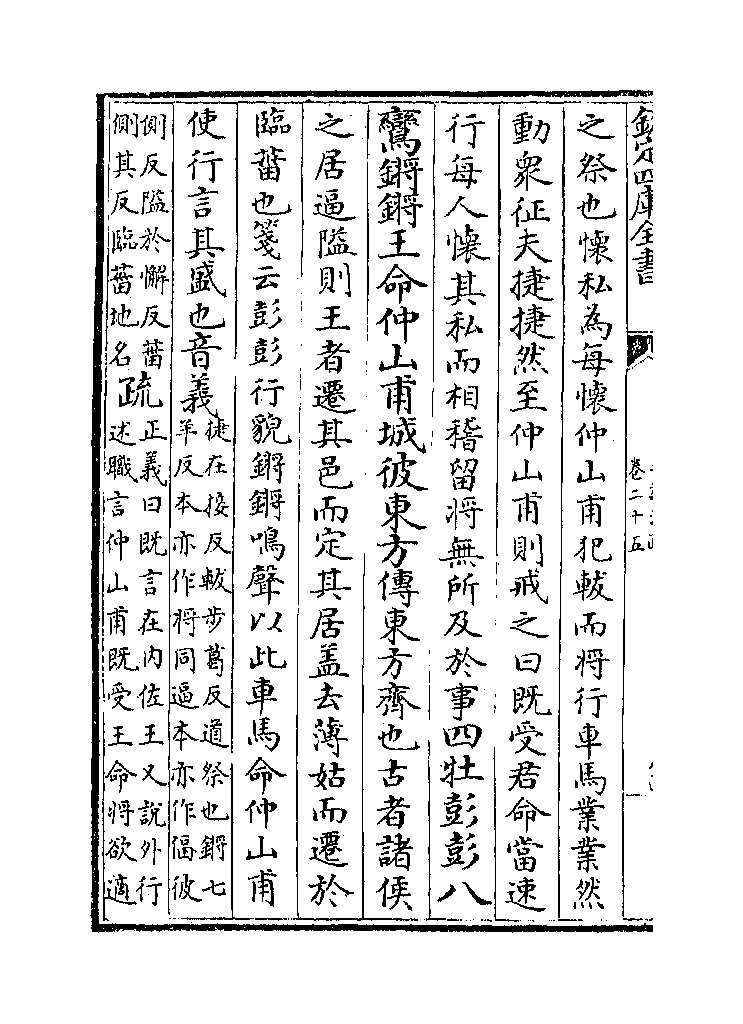 欽定四庫全書
卷二十五
之祭也懷私為每懷仲山甫犯軷而將行車馬業業然
動衆征夫捷捷然至仲山甫則戒之曰既受君命當速
行每人懷其私而相稽留將無所及於事四牡彭彭八
鸞鏘鏘王命仲山甫城彼東方傳東方齊也古者諸侯
之居逼隘則王者遷其邑而定其居盖去薄姑而遷於
臨菑也箋云彭彭行貌鏘鏘鳴聲以此車馬命仲山甫
使行言其盛也音義捷在接反軷步葛反道祭也鏘七
羊反本亦作將同逼本亦作偪彼
側反隘於懈反菑
側其反臨菑地名疏正義曰既言在內佐王又說外行
述職言仲山甫既受王命將欲適